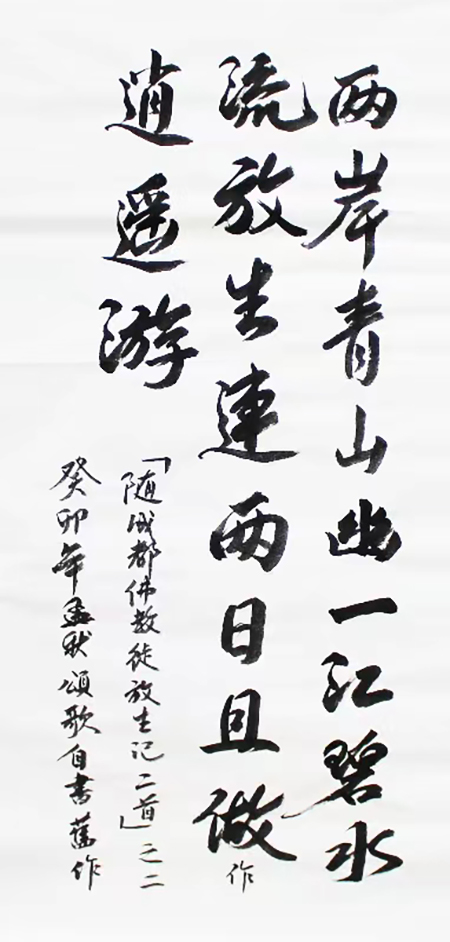 两岸青山幽一江碧水
流放生连两日且做作
逍遥游
「随成都佛教徒放生记二首」之二
癸卯年孟秋颂歌自书舊作